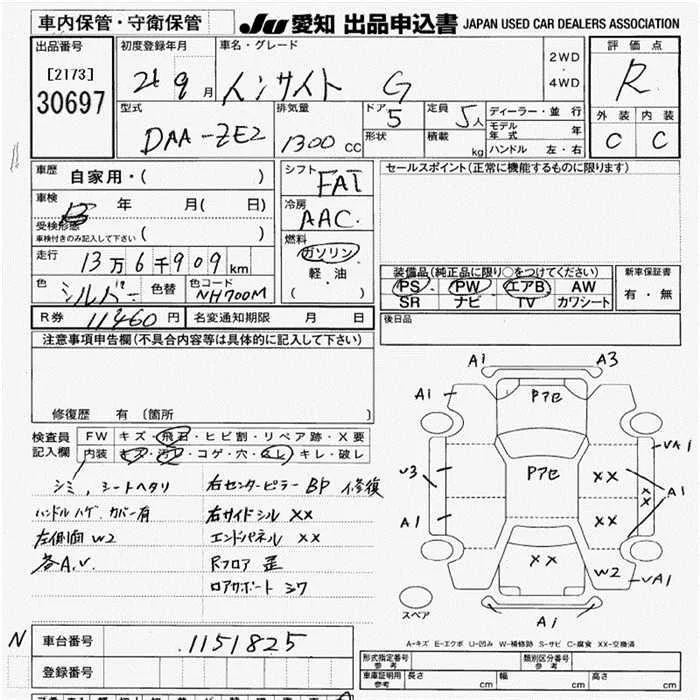 車内保管・守衛保管
JU 愛知 出品申込書 JAPAN USED CAR DEALERS ASSOCIATION
出品番号
[2173]
30697
初度登録年月
21 9 月
車名・グレード
インサイト G
2WD
・
4WD
評価点
R
外装 内装
C C
型式
DAA-ZE2
排気量
1300 CC
ドア
5
形状
定員
5人
積載
kg
ディーラー・並行
モデル年式 年
ハンドル 左・右
車歴
自家用・( )
車検
年 月( 日)
受検形態
車検付きのみ記入して下さい
( )
走行
13万6千909km
色
シルバー
色替
色コード
NH700M
シフト
FAT
冷房
AAC.
燃料
ガソリン
軽・油
( )
セールスポイント(正常に機能するものに限ります)
装備品(純正品に限り○をつけてください)
PS PW エアB AW
SR ナビ TV カワシート
新車保証書
有・無
R券 11460円
名変通知期限 月 日
後日品
注意事項申告欄(不具合内容等は具体的に記入して下さい)
修復歴 有〔箇所 〕
検査員
記入欄
FW キズ・飛石・ヒビ割・リペア跡・X要
内装 キズ・汚レ・コゲ・穴・スレ・キレ・破レ
シミ、シートヘタリ
ハンドルハゲ、カバー有
左側面 W2
各A.U.
右センターピラー BP 修復
右サイドシル XX
エンドパネル XX
Rフロア 歪
ロアサポート シワ
A1 A3
A1
Pアセ
UA1
U3
Pアセ
XX
XX
A1
A1
XX
XX
W2
UA1
A1
スペア
A-キズ E-エクボ U-凹み W-補修跡 S-サビ C-腐食 XX-交換済
N
車台番号
1151825
登録番号
形式指定番号
参考
類別区分番号
参考
車庫証明用
参考
長さ cm
幅 cm
高さ cm